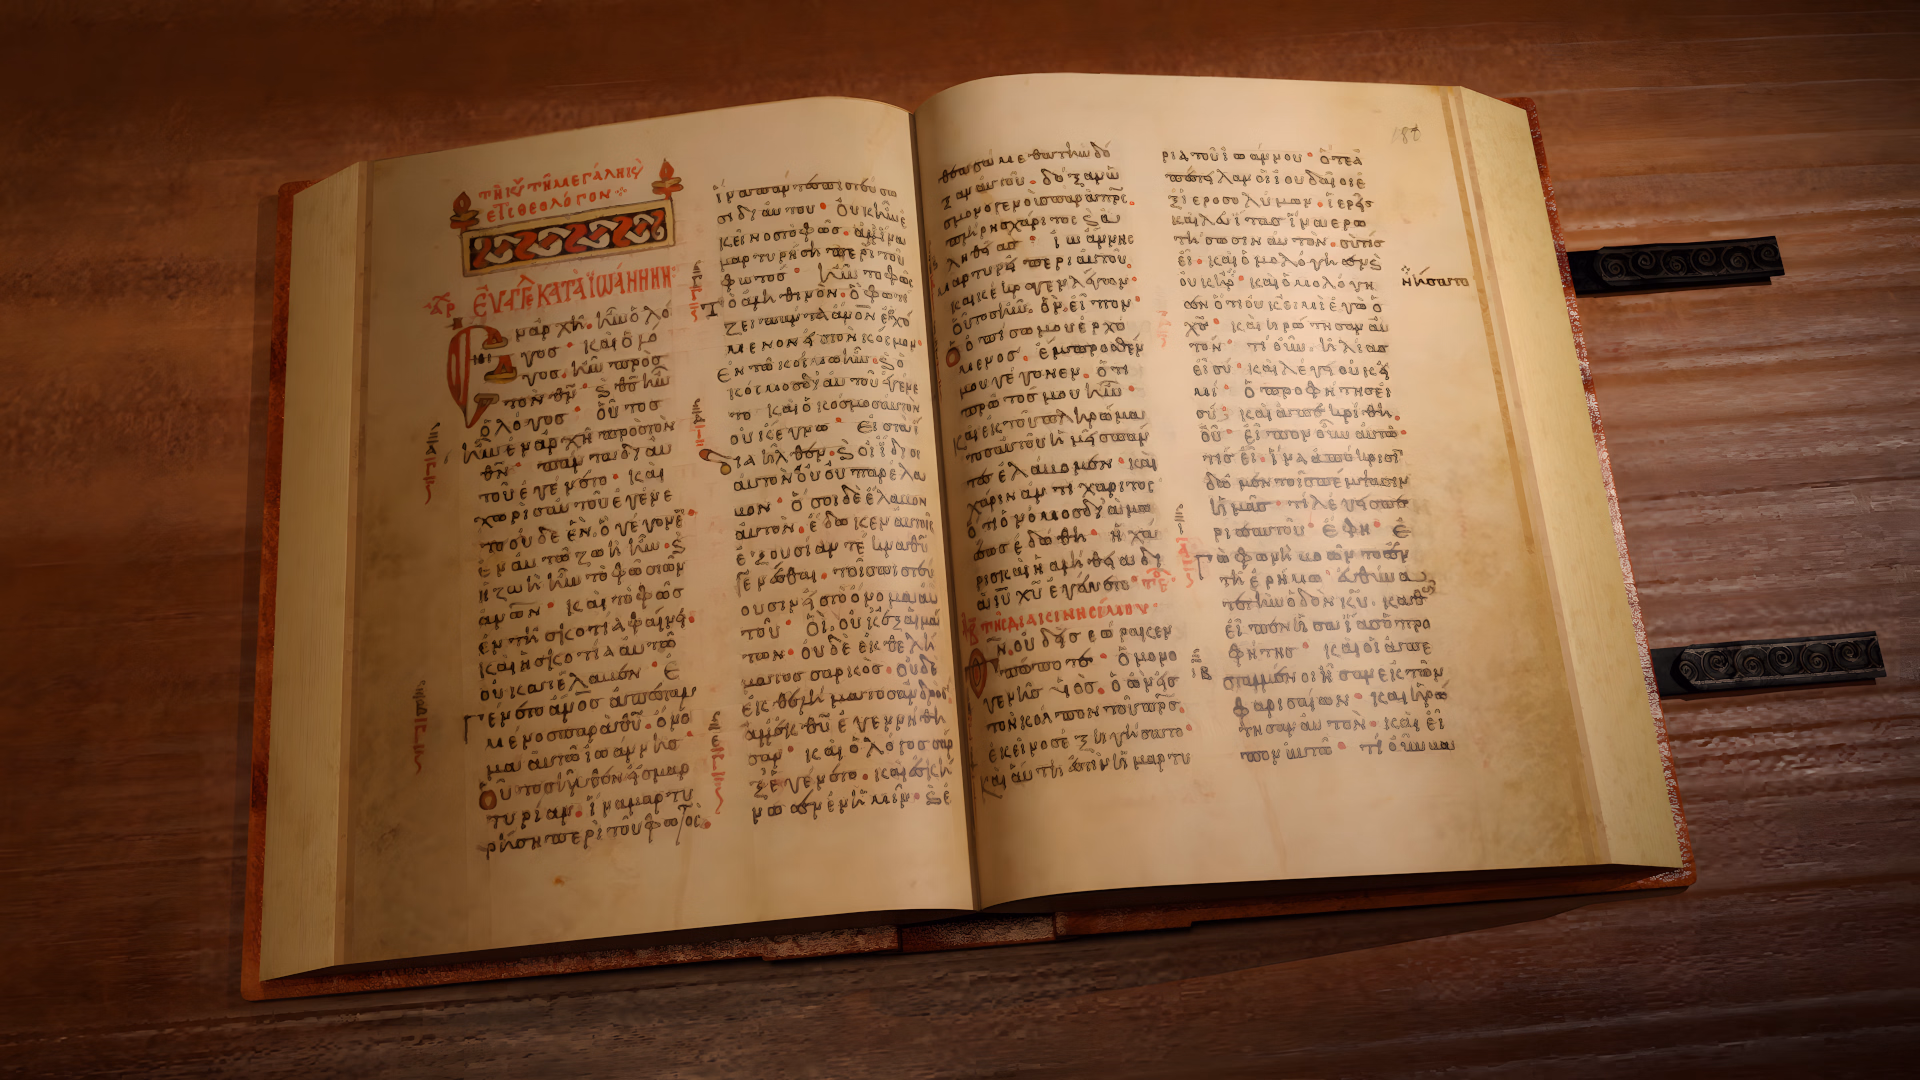 τῆ κυ τῆ μεγάλη
θεολόγον
Ἐυαγγε κατὰ ἰωάννην
Ἐν ἀρχῆ ἦν ὁ λό
γος · καὶ ὁ λο
γος ἦν πρὸς
τὸν θν · καὶ θς ἦν
ὁ λόγος · οὗτος
ἦν ἐν ἀρχῆ πρὸς τὸν
θν · πάντα δι αυ
τοῦ ἐγένετο · καὶ
χωρὶς αυτοῦ ἐγένε
το οὐδὲ ἕν. ὃ γέγονεν
ἐν αυτῶ ζωὴ ἦν · καὶ
ἡ ζωὴ ἦν τὸ φῶς τῶν
ανων · καὶ τὸ φῶς
ἐν τῆ σκοτία φαίνει ·
καὶ ἡ σκοτία αυτὸ
οὐ κατέλαβεν · Ἐ
γένετο ανος ἀπεσταλ
μένος παρὰ θυ · ὄνο
μα αυτῶ ἰωάννης ·
Οὗτος ἦλθεν εἰς μαρ
τυρίαν · ἵνα μαρτυ
ρήση περὶ τοῦ φωτός ·
ἵνα πάντες πιστεύσω
σι δι αυτοῦ · Οὐκ ἦν ἐ
κεῖνος τὸ φῶς · ἀλλ ἵνα
μαρτυρήση περὶ τοῦ
φωτός · ἦν τὸ φῶς
τὸ ἀληθινὸν · ὃ φωτί
ζει πάντα ανον ἐρχό
μενον εἰς τὸν κόσμον ·
Ἐν τῶ κόσμω ἦν · καὶ ὁ
κόσμος δι αυτοῦ ἐγένε
το · καὶ ὁ κόσμος αυτὸν
οὐκ ἔγνω · Εἰς τὰ ἴ
δια ἦλθεν · καὶ οἱ ἴδιοι
αυτὸν οὐ παρέλα
βον · Ὅσοι δὲ ἔλαβον
αυτὸν · ἔδωκεν αυτοῖς
ἐξουσίαν τέκνα θυ
γενέσθαι · τοῖς πιστεύ
ουσιν εἰς τὸ ὄνομα αυ
τοῦ · Οἳ οὐκ ἐξ αἱμά
των · οὐδὲ ἐκ θελή
ματος σαρκὸς · οὐδὲ
ἐκ θελήματος ανδρὸς ·
ἀλλ ἐκ θυ ἐγεννήθη
σαν · καὶ ὁ λόγος σὰρ
ξ ἐγένετο · καὶ ἐσκή
νωσεν ἐν ἡμῖν · καὶ ἐ
θεασάμεθα τὴν δό
ξαν αυτοῦ · δόξαν ὡς
μονογενοῦς παρὰ πρς ·
πλήρης χάριτος καὶ ἀ
ληθείας · ἰωάννης
μαρτυρεῖ περὶ αυτοῦ ·
καὶ κέκραγεν λέγων ·
Οὗτος ἦν · ὃν εἶπον ·
ὁ ὀπίσω μου ἐρχό
μενος · ἔμπροσθέν
μου γέγονεν · ὅτι
πρῶτός μου ἦν ·
Καὶ ἐκ τοῦ πληρώμα
τος αυτοῦ ἡμεῖς πάν
τες ἐλάβομεν · καὶ
χάριν αντι χάριτος ·
Ὅτι ὁ νόμος διὰ μω
σέως ἐδόθη · ἡ χά
ρις καὶ ἡ ἀλήθεια δι
α ιυ χυ ἐγένετο ·
τῆ διακινησίμου ·
Θν οὐδεὶς ἑώρακεν
πώποτε · Ὁ μονο
γενὴς υς · ὁ ὢν εἰς
τὸν κόλπον τοῦ πρς ·
ἐκεῖνος ἐξηγήσατο ·
Καὶ αὕτη ἐστὶν ἡ μαρτυ
ρία τοῦ ἰωάννου · ὅτε ἀ
πέστειλαν οἱ ἰουδαῖοι ἐ
ξ ἱεροσολύμων · ἱερεῖς
καὶ λευίτας ἵνα ἐρω
τήσωσιν αυτὸν · σὺ τίς
εἶ · καὶ ὡμολόγησεν καὶ
οὐκ ἠρ · καὶ ὡμολόγη ἠρνήσατο
σεν ὅτι οὐκ εἰμὶ ἐγὼ ὁ
χς · καὶ ἠρώτησαν αυ
τὸν · τί οὖν · ἠλίας
εἶ σύ · καὶ λέγει οὐκ εἰ
μί · ὁ προφήτης εἶ
σύ · καὶ ἀπεκρίθη ·
οὔ · εἶπον οὖν αυτῶ ·
τίς εἶ · ἵνα ἀπόκρισιν
δῶμεν τοῖς πέμψασιν
ἡμᾶς · τί λέγεις πε
ρὶ σεαυτοῦ · ἔφη · Ἐ
γὼ φωνὴ βοῶντος ἐν
τῆ ἐρήμω · εὐθύνα
τε τὴν ὁδὸν κυ · καθὼς
εἶπεν ἡσαΐας ὁ προ
φήτης · καὶ οἱ ἀπε
σταλμένοι ἦσαν ἐκ τῶν
φαρισαίων · καὶ ἠρώ
τησαν αυτὸν · καὶ εἶ
πον αυτῶ · τί οὖν βα